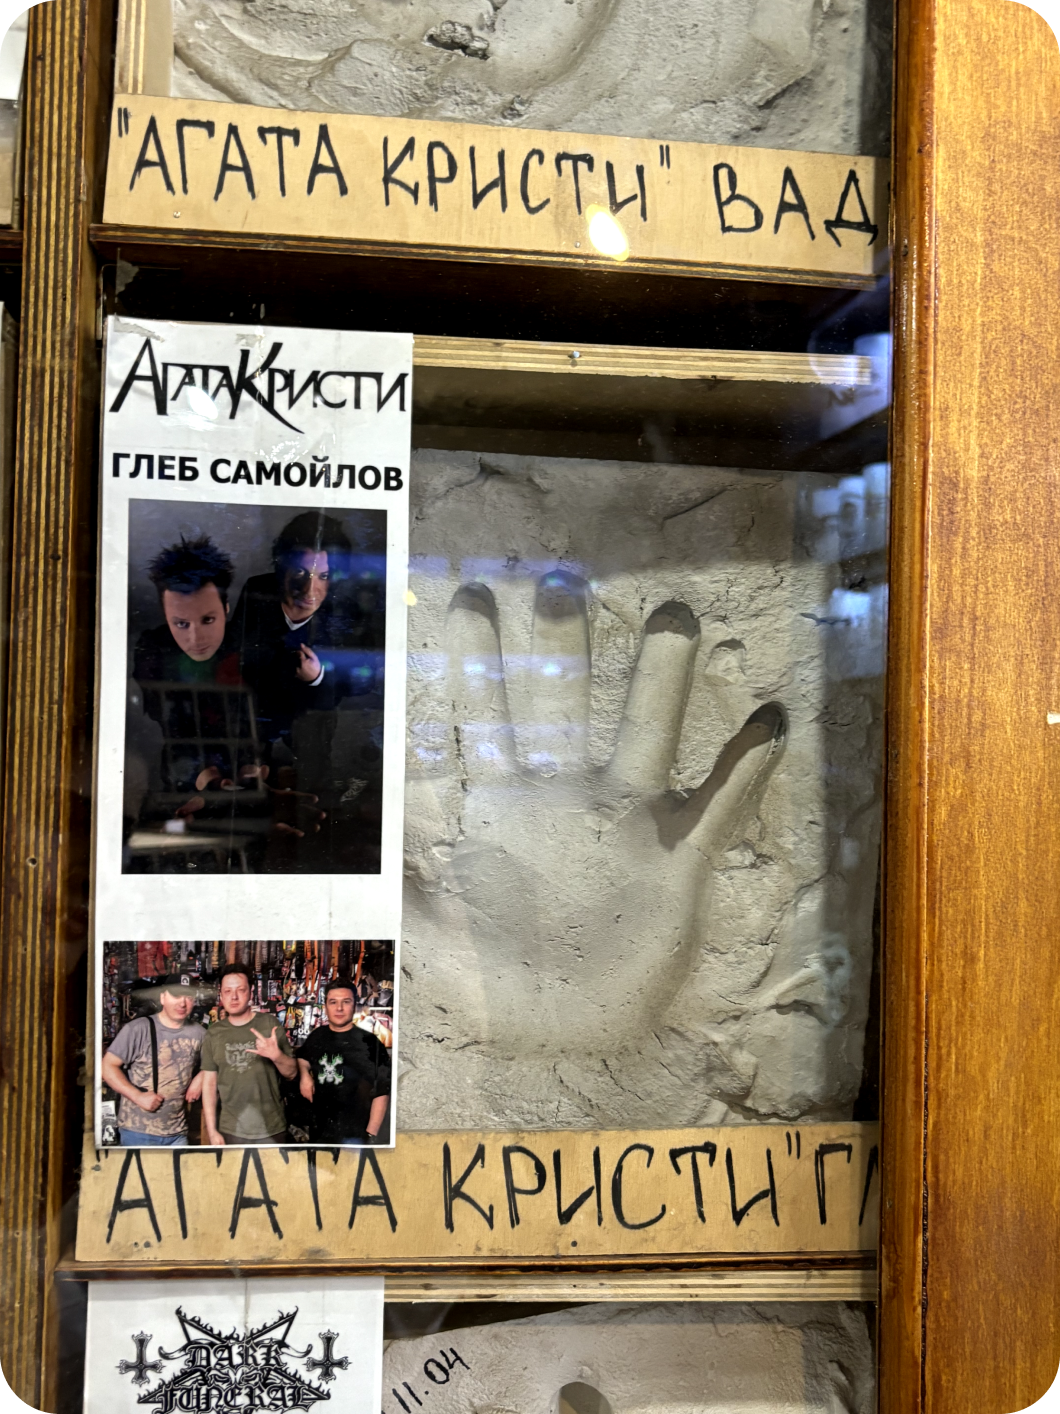 "АГАТА КРИСТИ" ВАД
АГАТА КРИСТИ
ГЛЕБ САМОЙЛОВ
"АГАТА КРИСТИ" ГЛ
DARK
FUNERAL
11.04